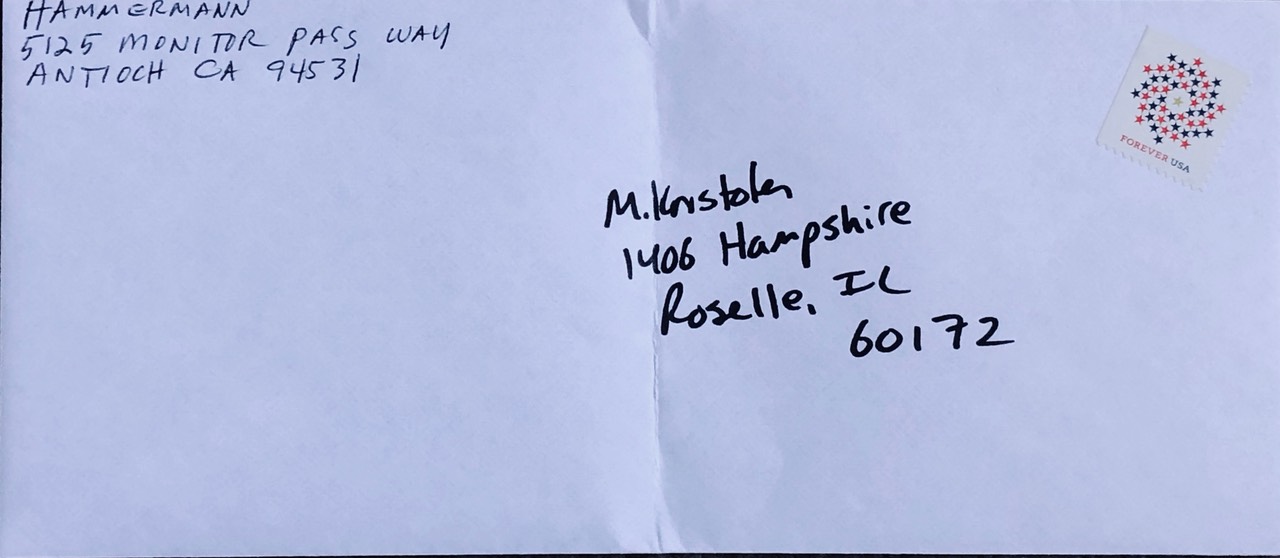 HAMMERMANN
5125 MONITOR PASS WAY
ANTIOCH CA 94531
FOREVER USA
M.
1406 Hampshire
Roselle, IL
60172